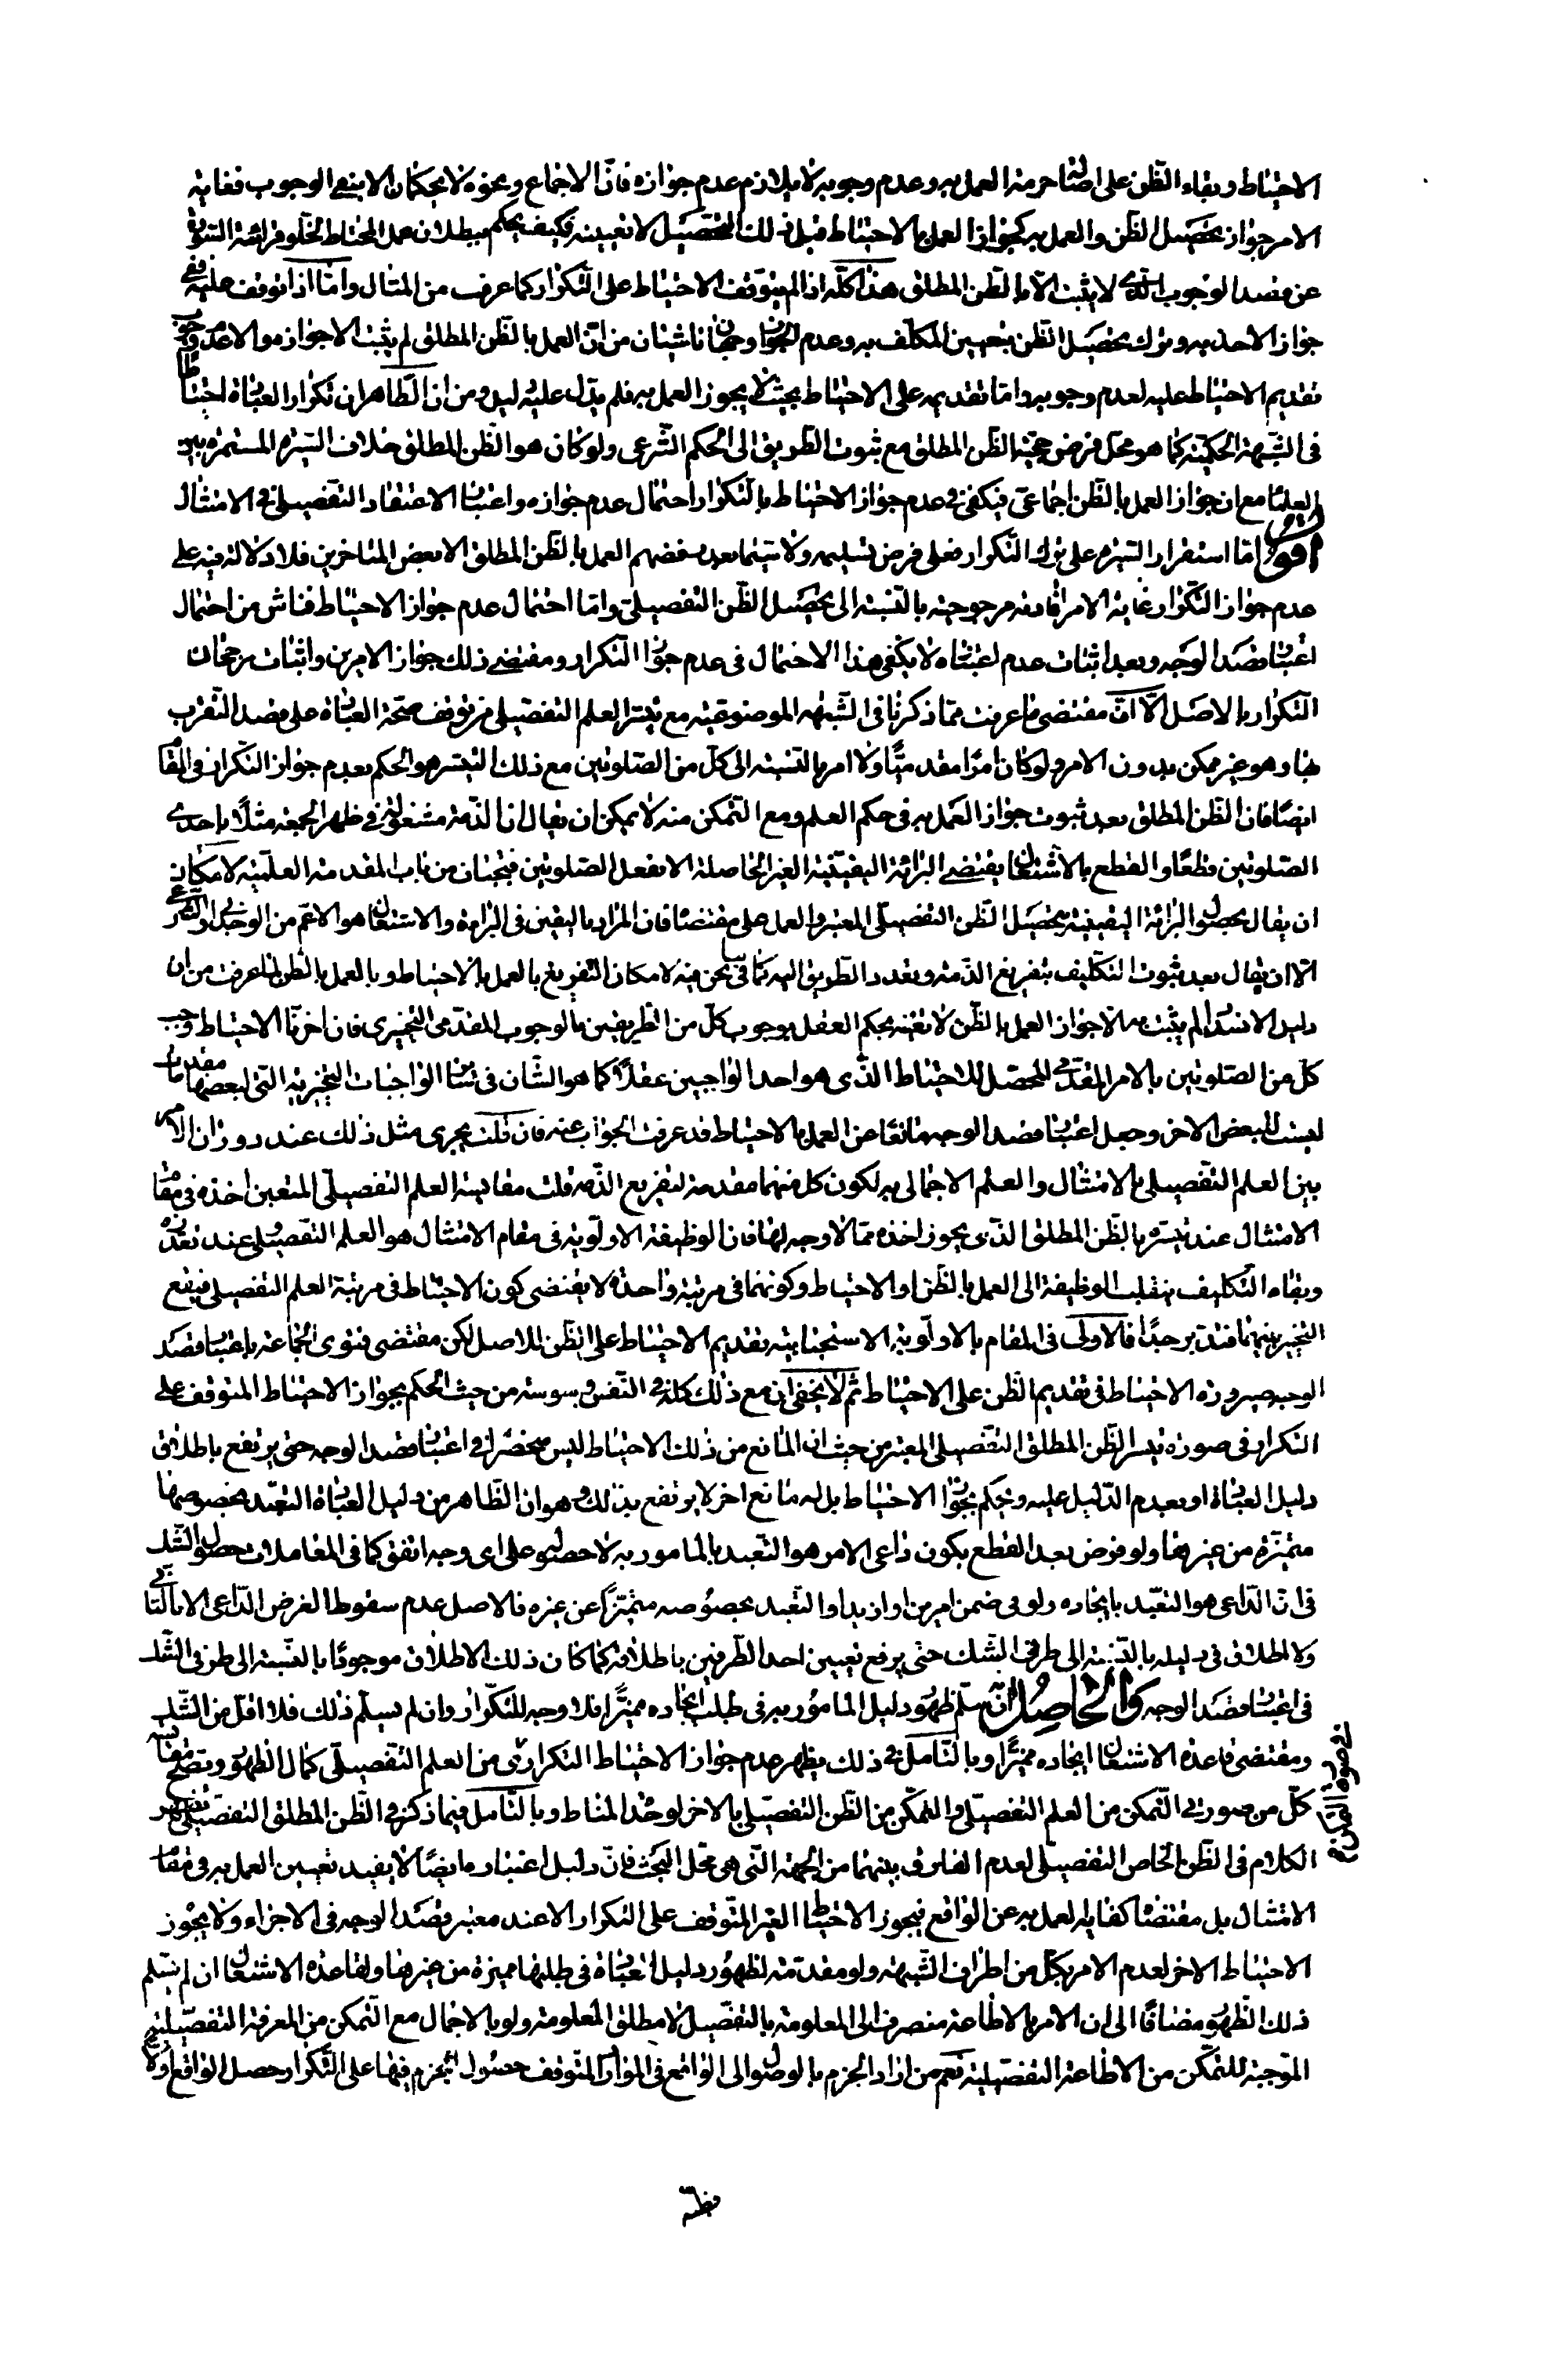 الاحتياط وبقاء الظن على اصالة حرمة العمل به وعدم وجوبه لا يلازم عدم جوازه فان الاجماع ونحوه لا يحكمان الا بنفى الوجوب فغاية
الامر جواز تحصيل الظن والعمل به كجواز العمل بالاحتياط قبل ذلك التحصيل لا تعيينه فكيف يحكم ببطلان عمل المحتاط لخلو قرائته السورة
عن قصد الوجوب الذى لا يثبت الا بالظن المطلق هذا كله اذا لم يتوقف الاحتياط على التكرار كما عرفت من المثال واما اذا توقف عليه ففى
جواز الاخذ به وترك تحصيل الظن بتعيين المكلف به وعدم الجواز وجهان ناشئان من ان العمل بالظن المطلق لم يثبت الا جوازه والا عدم وجوب
تقديم الاحتياط عليه لعدم وجوبه واما تقديمه على الاحتياط بحيث لا يجوز العمل به فلم يدل عليه دليل ومن ان الظاهر ان تكرار العبادة احتياطا
فى الشبهة الحكمية كما هو محل فرض حجية الظن المطلق مع ثبوت الطريق الى الحكم الشرعى ولو كان هو الظن المطلق خلاف السيرة المستمرة بين
العلماء مع ان جواز العمل بالظن اجماعى فيكفى فى عدم جواز الاحتياط بالتكرار احتمال عدم جوازه واعتبار الاعتقاد التفصيلى فى الامتثال
اقول اما استقرار السيرة على ترك التكرار فعلى فرض تسليمه ولا سيما بعد رفضهم العمل بالظن المطلق الا بعض المتاخرين فلا دلالة فيه على
عدم جواز التكرار غاية الامر افادته مرجوحيته بالنسبة الى تحصيل الظن التفصيلى واما احتمال عدم جواز الاحتياط فناش من احتمال
اعتبار قصد الوجه وبعد اثبات عدم اعتباره لا يكفى هذا الاحتمال فى عدم جواز التكرار ومقتضى ذلك جواز الامرين واثبات رجحان
التكرار بالاصل الا ان مقتضى ما عرفت مما ذكرنا فى الشبهة الموضوعية مع تيسر العلم التفصيلى من توقف صحة العبادة على قصد التقرب
بها وهو غير ممكن بدون الامر ولو كان امرا مقدميا ولا امر بالنسبة الى كل من الصلوتين مع ذلك التيسر هو الحكم بعدم جواز التكرار فى المقام
ايضا فان الظن المطلق بعد ثبوت جواز العمل به فى حكم العلم ومع التمكن منه لا يمكن ان يقال ان الذمة مشغولة فى ظهر الجمعة مثلا باحدى
الصلوتين قطعا والقطع بالاشتغال يقتضى البرائة اليقينية الغير الحاصلة الا بفعل الصلوتين فيجبان من باب المقدمة العلمية لامكان
ان يقال بحصول البرائة اليقينية بتحصيل الظن التفصيلى المعتبر والعمل على مقتضاه فان المراد باليقين فى البراءة والاشتغال هو الاعم من الوجدانى والشرعى
الا ان يقال بعد ثبوت التكليف بتفريغ الذمة وتعدد الطريق اليه كما فيما نحن فيه لامكان التفريغ بالعمل بالاحتياط وبالعمل بالظن لما عرفت من ان
دليل الانسداد لم يثبت به الا جواز العمل بالظن لا تعينه يحكم العقل بوجوب كل من الطريقين بالوجوب المقدمى التخييرى فان اخرنا الاحتياط وجب
كل من الصلوتين بالامر المقدمى المحصل للاحتياط الذى هو احد الواجبين عقلا كما هو الشان فى سائر الواجبات التخييرية التى لبعضها مقدمات
ليست للبعض الاخر وجعل اعتبار قصد الوجه مانعا عن العمل بالاحتياط قد عرفت الجواب عنه فان قلت يجرى مثل ذلك عند دوران الامر
بين العلم التفصيلى بالامتثال والعلم الاجمالى به لكون كل منهما مقدمة لتفريغ الذمة قلت مقايسة العلم التفصيلى المتعين اخذه فى مقام
الامتثال عند تيسره بالظن المطلق الذى يجوز اخذه مما لا وجه لها فان الوظيفة الاولوية فى مقام الامتثال هو العلم التفصيلى عند تعذره
وبقاء التكليف ينقلب الوظيفة الى العمل بالظن او الاحتياط وكونهما فى مرتبة واحدة لا يقتضى كون الاحتياط فى مرتبة العلم التفصيلى فيقع
التخيير بينهما فتدبر جدا فالاولى فى المقام بالاولوية الاستحبابية تقديم الاحتياط على الظن للاصل لكن مقتضى فتوى الجماعة باعتبار قصد
الوجه صيرورة الاحتياط فى تقديم الظن على الاحتياط ثم لا يخفى ان مع ذلك كله فى النفس وسوسة من حيث الحكم بجواز الاحتياط المتوقف على
التكرار فى صورة تيسر الظن المطلق التفصيلى المعتبر من حيث ان المانع من ذلك الاحتياط ليس منحصرا فى اعتبار قصد الوجه حتى يرتفع باطلاق
دليل العبادة او بعدم الدليل عليه ونحكم بجواز الاحتياط بل له مانع اخر لا يرتفع بذلك وهو ان الظاهر من دليل العبادة التعبد بخصوصها
متميزة من غيرها ولو فرض بعد القطع بكون داعى الامر هو التعبد بالمامور به لا حصوله على اى وجه اتفق كما فى المعاملات حصول الشك
فى ان الداعى هو التعبد بايجاده ولو فى ضمن امرين او ازيد او التعبد بخصوصه متميزا عن غيره فالاصل عدم سقوط الغرض الداعى الا بالثانى
ولا اطلاق فى دليله بالنسبة الى طرفى الشك حتى يرفع تعيين احد الطرفين باطلاقه كما كان ذلك الاطلاق موجودا بالنسبة الى طرفى الشك
فى اعتبار قصد الوجه والحاصل ان سلم ظهور دليل المامور به فى طلب ايجاده مميزا فلا وجه للتكرار وان لم يسلم ذلك فلا اقل من الشك
ومقتضى قاعدة الاشتغال ايجاده مميزا وبالتامل فى ذلك يظهر عدم جواز الاحتياط التكرارى من العلم التفصيلى كمال الظهور وتصح مقايسة
كل من صورتى التمكن من العلم التفصيلى والتمكن من الظن التفصيلى بالاخر لوحدة المناط وبالتامل فيما ذكر فى الظن المطلق التفصيلى يظهر
الكلام فى الظن الخاص التفصيلى لعدم الفارق بينهما من الجهة التى هى محل البحث فان دليل اعتباره ايضا لا يفيد تعيين العمل به فى مقام
الامتثال بل مقتضاه كفاية العمل به عن الواقع فيجوز الاحتياط الغير المتوقف على التكرار الا عند معتبر قصد الوجه فى الاجزاء ولا يجوز
الاحتياط الاخر لعدم الامر بكل من اطراف الشبهة ولو مقدمة لظهور دليل العبادة فى طلبها مميزة من غيرها ولقاعدة الاشتغال ان لم يسلم
ذلك الظهور مضافا الى ان الامر بالاطاعة منصرف الى المعلومة بالتفصيل لا مطلق المعلومة ولو بالاجمال مع التمكن من المعرفة التفصيلية
الموجبة للتمكن من الاطاعة التفصيلية نعم من اراد الجزم بالوصول الى الواقع فى الموارد المتوقف حصول الجزم فيها على التكرار حصل الواقع اولا